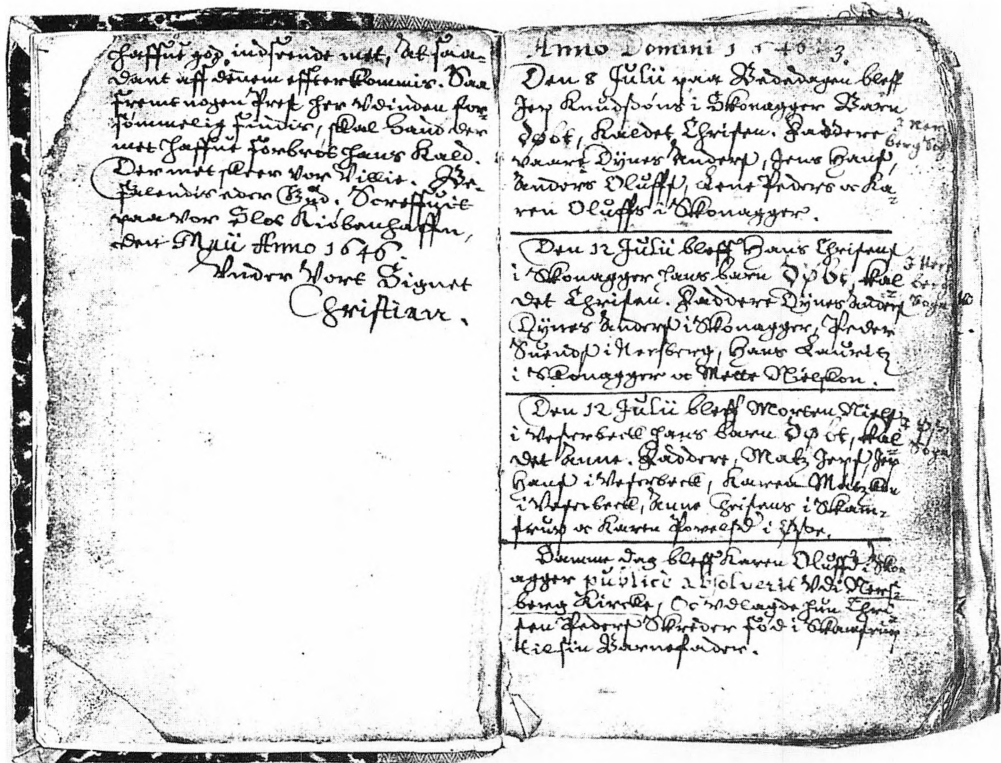 haffue god indseende met, At saa-
dant aff dennem effterkommis. Saa
fremt nogen Prest her vdinden for
sømmelig findis, skal hand der
met haffue forbrot hans Kald.
Der met skeer vor Villie. Be-
falendis eder Gud. Screffuit
paa vor Slot Kiøbenhaffn,
den Maij Anno 1646.
Vnder Vort Signet
Christian.
Anno Domini 1646 3.
Den 8 Julii paa Bededagen bleff
Jep Knudsøns i Skonagger Barn
Døbt, Kaldet Christen. Faddere
vaare Dynes Anders, Jens Hans,
Anders Oluffs, Lene Peders oc Ka=
ren Oluffs i Skonagger.
J Ners
berg Sogn
Den 12 Julii bleff Hans Christens
i Skonagger hans barn Døbt, Kal=
det Christen. Faddere Dynes Anders
Dynes Anders i Skonagger, Peder
Suends i Nersberg, Hans Lauritz
i Skonagger oc Mette Nielskon.
J Ners
berg
Sogn
Den 12 Julii bleff Morten Niels
i Vesterbeck hans barn Døbt, Kal
det Anne. Faddere, Matz Jeps, Jep
Hans i Vesterbeck, Karen Matzkon
i Vesterbeck, Anne Christens i Skam=
strup oc Karen Povels i Øse.
J Øse
Sogn
Samme dag bleff Karen Oluffs i Sko
agger publicè absolverit vdi Ners=
berg Kircke, Oc vdlagde hun Chri
sten Peders Skreder fød i Skamstrup
til sin Barnefader.